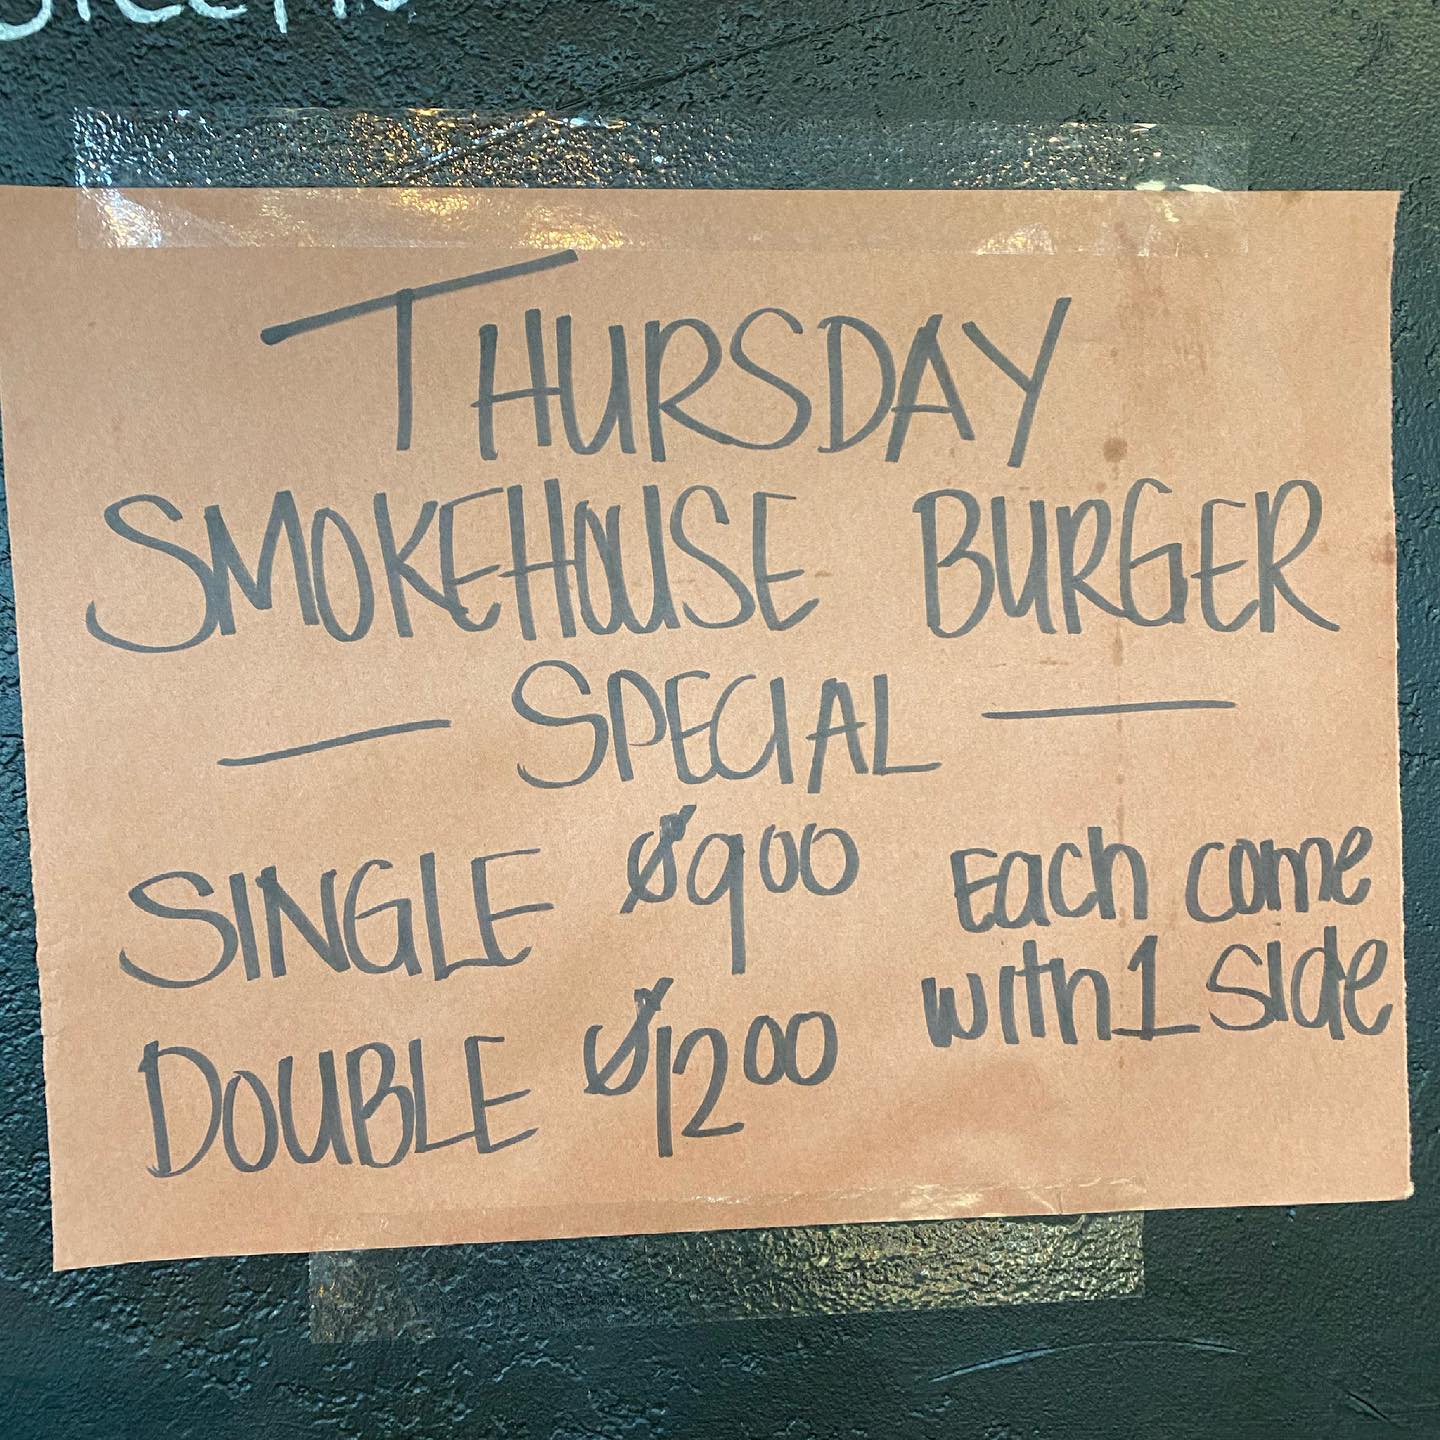 THURSDAY
SMOKEHOUSE BURGER
— SPECIAL —
SINGLE $9.00
DOUBLE $12.00
Each come
with 1 side